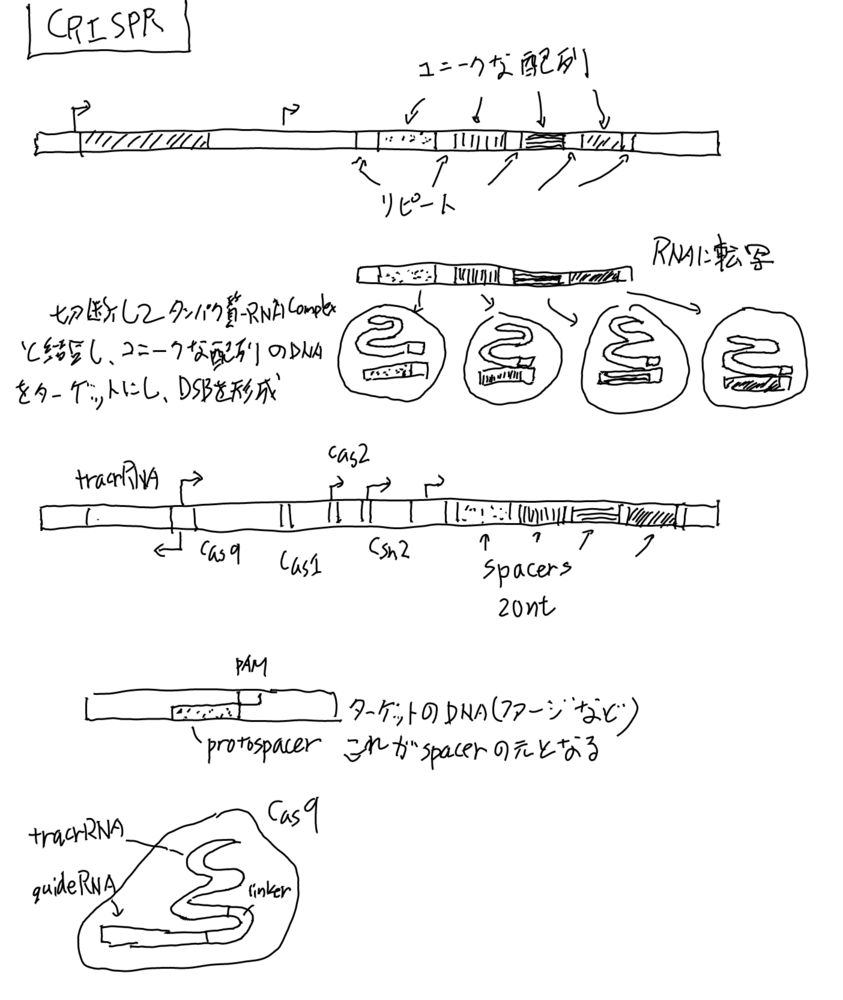 CRISPR
ユニークな配列
リピート
RNAに転写
切断してタンパク質-RNA Complex
と結合し、ユニークな配列のDNA
をターゲットにし、DSBを形成
cas2
tracrRNA
Cas9
Cas1
Csn2
spacers
20nt
PAM
protospacer
ターゲットのDNA(ファージなど)
これがspacerの元となる
Cas9
tracrRNA
guideRNA
linker